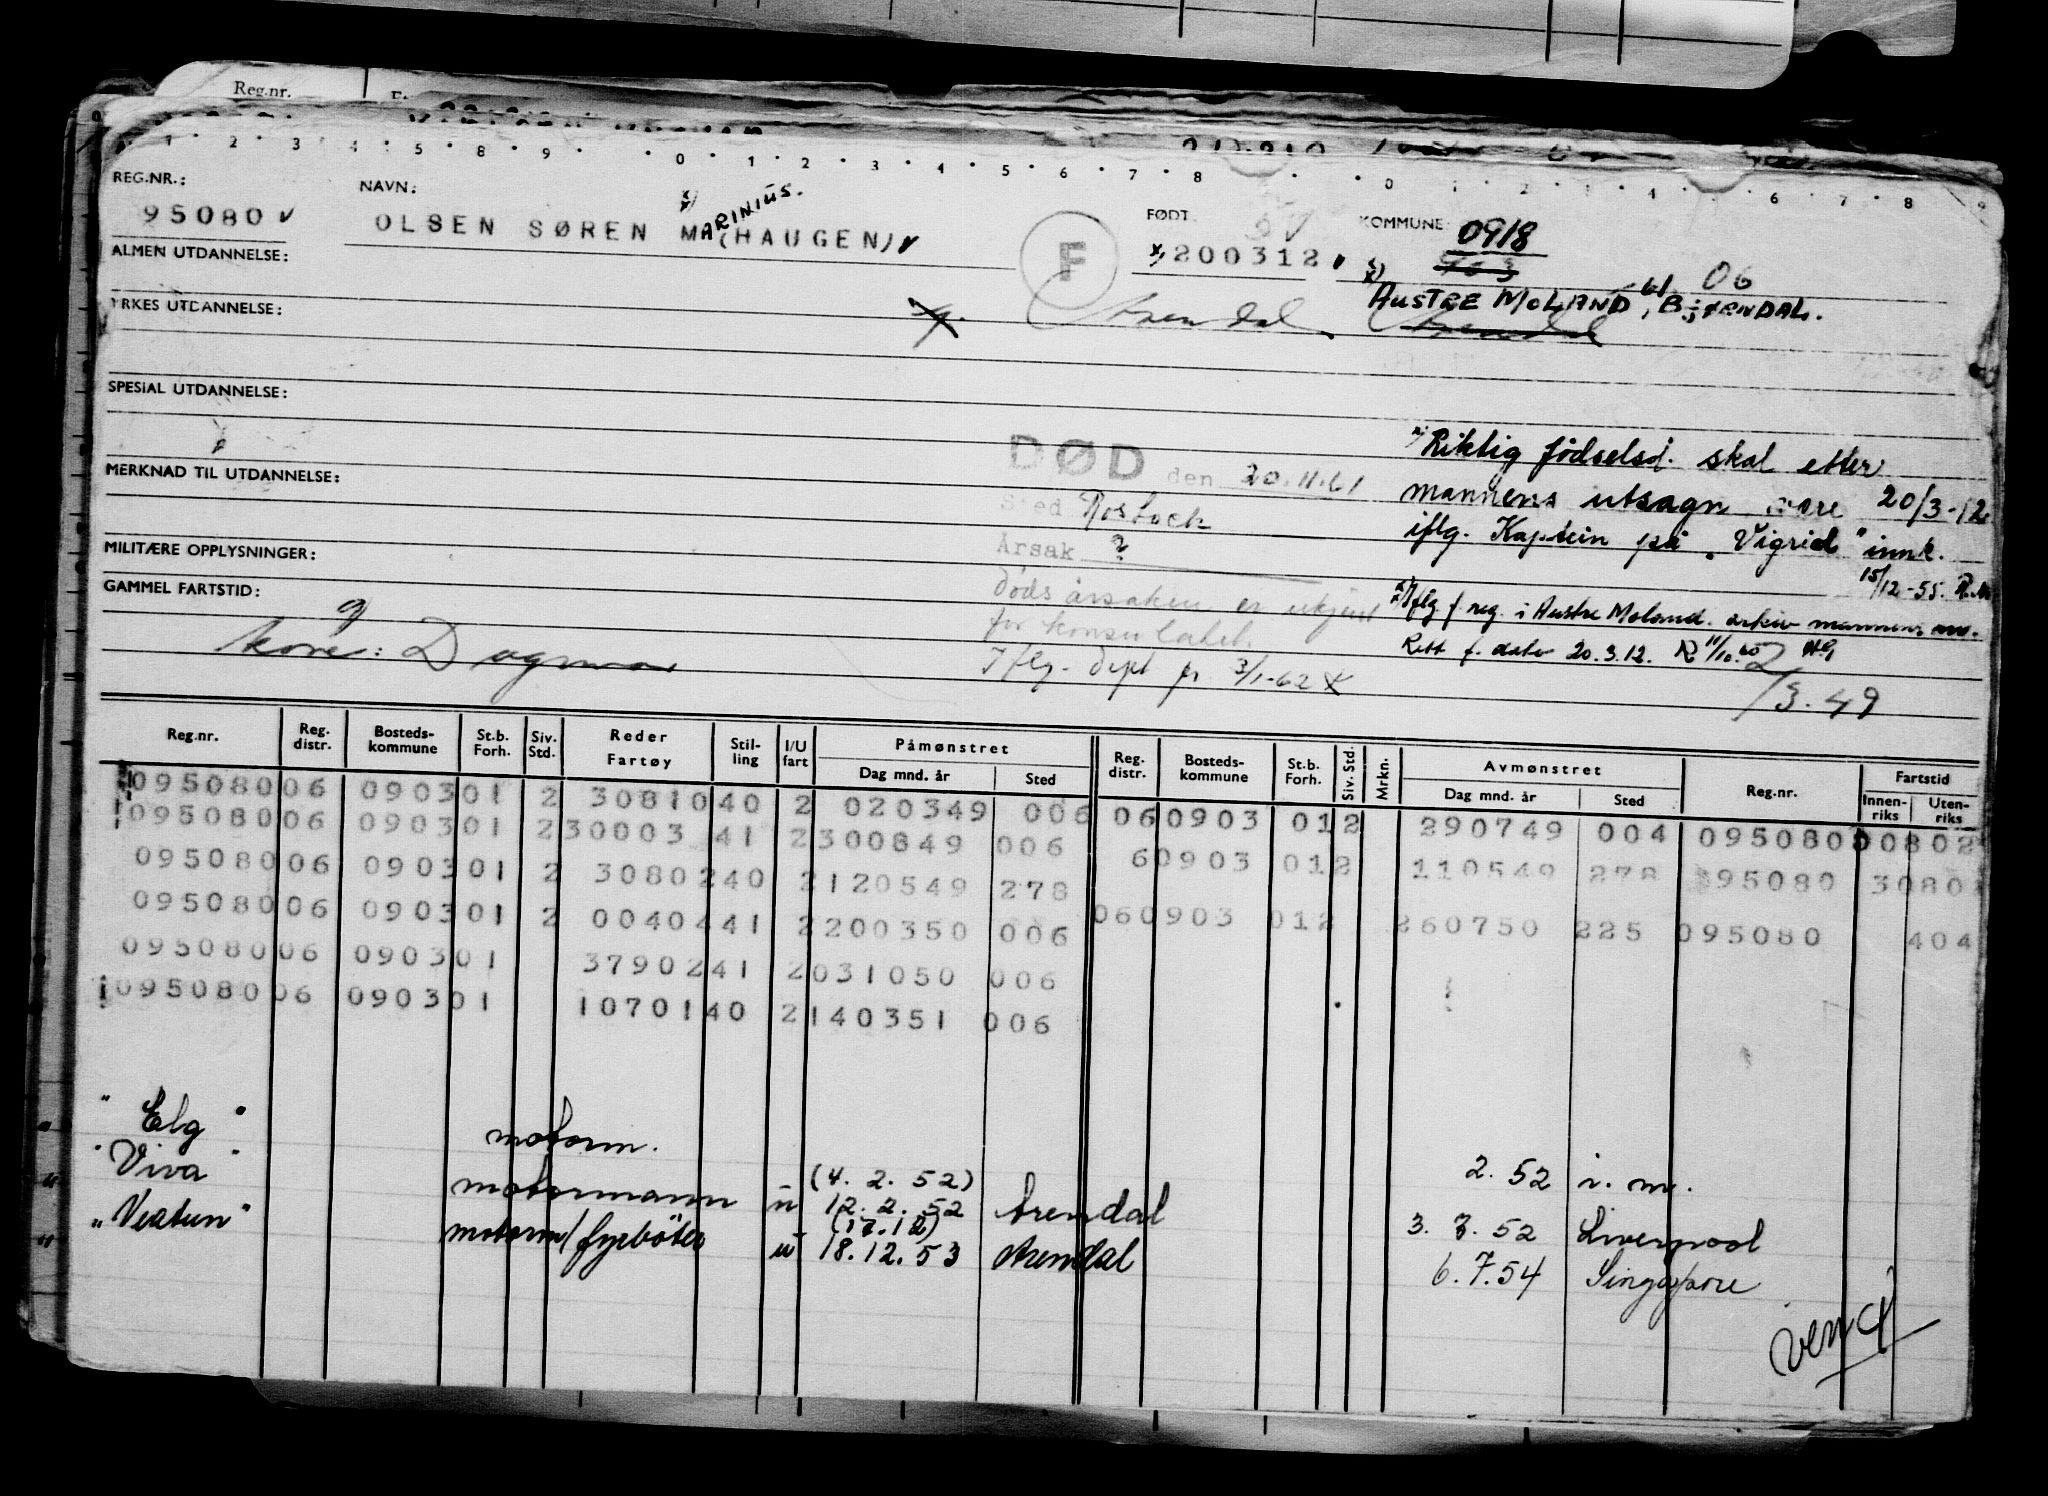 Reg.nr.
REG.NR.: NAVN: FØDT KOMMUNE
95080 OLSEN SØREN MARINIUS. (HAUGEN) F 200312 0918
ALMEN UTDANNELSE: 06
AUSTRE MOLAND
YRKES UTDANNELSE: Arendal Arendal
SPESIAL UTDANNELSE:
DØD den 20.11.61
Sted Rostock
Årsak ?
Dødsårsaken er ukjent
for konsulatet.
Iflg. dept br 3/1-62
x) Riktig fødselsd. skal etter
mannens utsagn være 20/3-12
iflg. Kaptein på "Vigrid" innk.
15/12-55.
xx) Iflg f. reg. i Austre Moland. arkiv mannens nv.
Rett f. dato 20.3.12.
2/3.49
MERKNAD TIL UTDANNELSE:
MILITÆRE OPPLYSNINGER:
GAMMEL FARTSTID:
g
kone: Dagmar
Reg.nr. Reg. distr. Bosteds- kommune St.b. Forh. Siv. Std. Reder Fartøy Stil- ling I/U fart Påmønstret Dag mnd. år Sted Reg. distr. Bosteds- kommune St.b. Forh. Siv. Std. Mrkn. Avmønstret Dag mnd. år Sted Reg.nr. Fartstid Innen- riks Uten- riks
095080 06 0903 01 2 30810 40 2 020349 006 06 0903 01 2 290749 004 095080 00802
095080 06 0903 01 2 30003 41 2 300849 006 6 0903 01 2 110549 278 95080 3080
095080 06 0903 01 2 30802 40 2 120549 278 06 0903 01 2 260750 225 095080 404
095080 06 0903 01 2 00404 41 2 200350 006
095080 06 0903 01 37902 41 2 031050 006
095080 06 0903 01 10701 40 2 140351 006
"Elg" motorm. (4.2.52) 2.52 i. m.
"Viva" motormann u 12.2.52 Arendal 3.7.52 Liverpool
(17.12)
motorm/fyrbøter u 18.12.53 Arendal 6.7.54 Singapore